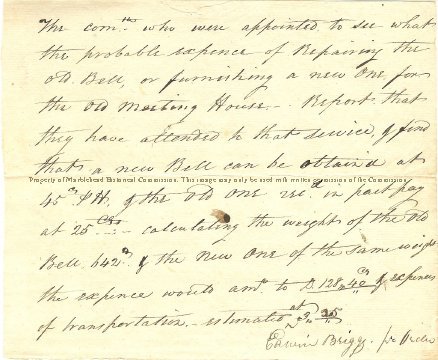 The comtte who were appointed to see what
the probable expence of Repairing the
old Bell, or furnishing a new One for
the old Meeting House, - Report that
they have attended to that service, & find
that a new Bell can be obtain'd at
Property of Marblehead Historical Commission. This image may only be used with written permission of the Commission.
45cts & the old One recd in part pay
at 25 Cts calculating the weight of the old
Bell 642 & the new One of the same weight
the expence would amt to $128.40 & expences
of transportation - estimated at 2.25
Edwin Briggs pr Order